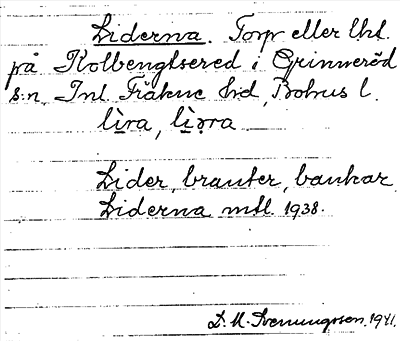 Liderna. Torp eller lht.
på Kolbengtsered i Grinneröd
s:n, Inl. Fräkne hd, Bohus l.
lìra, lìrra
Lider, branter, bankar.
Liderna mtl. 1938.
D. M. Svenungsson. 1941.